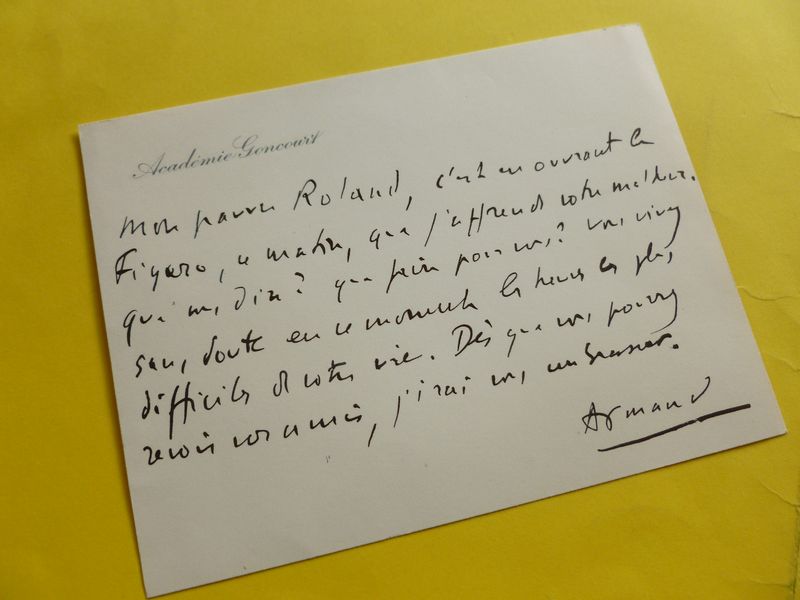 Académie Goncourt
Mon pauvre Roland, c'est en ouvrant le
Figaro, ce matin, que j'apprends votre malheur.
Que vous dire? Que faire pour vous? Vous vivez
sans doute en ce moment les heures les plus
difficiles de votre vie. Dès que vous pourrez
revoir vos amis, j'irai vous embrasser.
Armand